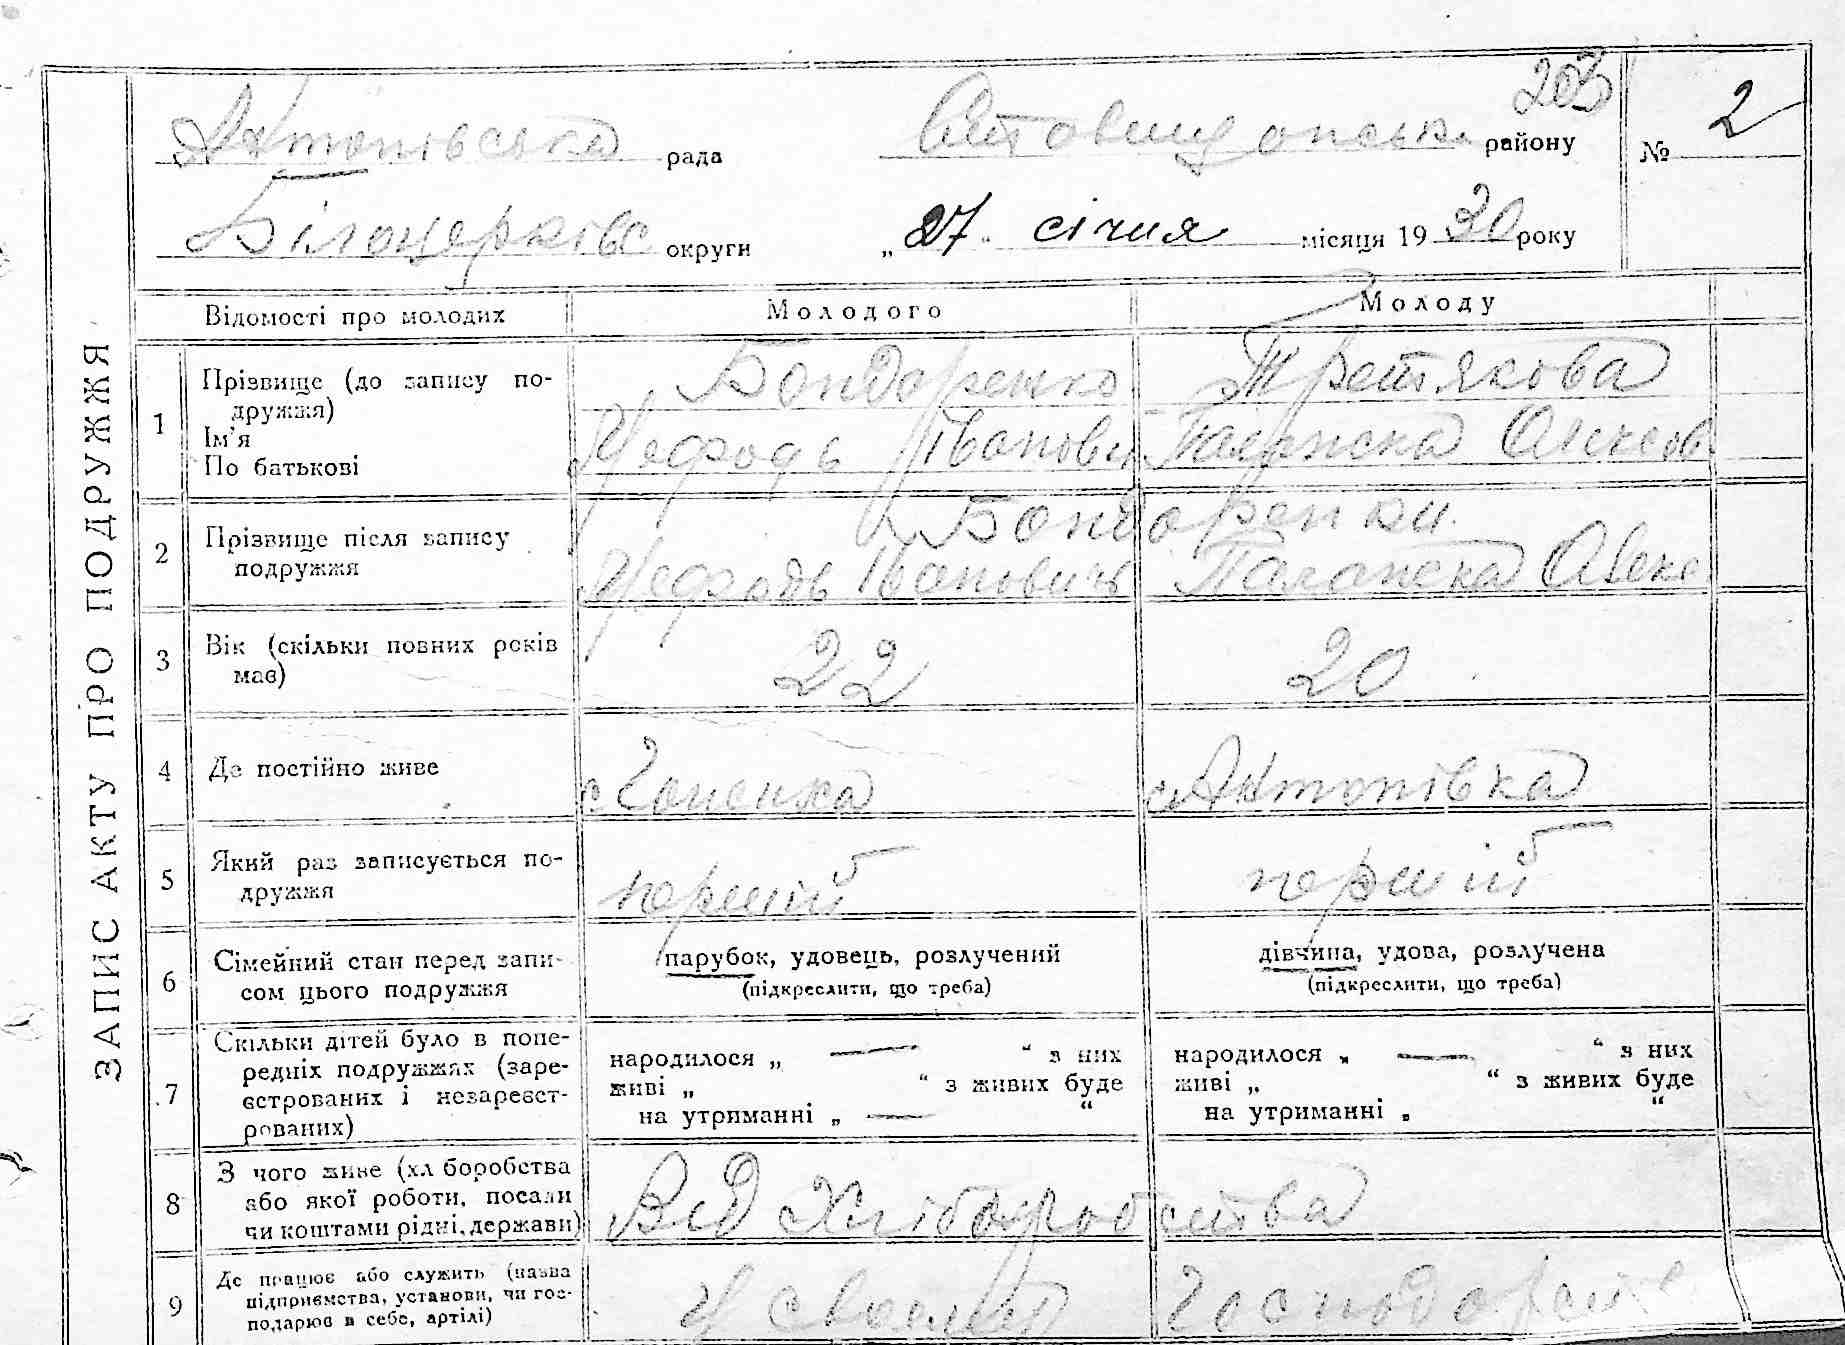 203
Антонівська рада Ставищанськ району № 2
Білоцерківс округи „27“ січня місяця 1930 року
ЗАПИС АКТУ ПРО ПОДРУЖЖЯ
Відомості про молодих Молодого Молоду
1 Прізвище (до запису по-
дружжя)
Ім'я
По батькові
Бондаренко
Мефодь Іванови
Третякова
Палажка Олексов
2 Прізвище після запису
подружжя
Бондаренки
Мефодь Іванович Палажка Олекс
3 Вік (скільки повних років
має)
22 20
4 Де постійно живе с Антонівка
5 Який раз записується по-
дружжя
перший перший
6 Сімейний стан перед запи-
сом цього подружжя
парубок, удовець, розлучений
(підкреслити, що треба)
дівчина, удова, розлучена
(підкреслити, що треба)
7 Скільки дітей було в попе-
редніх подружжях (заре-
єстрованих і незареєст-
рованих)
народилося „ — “ з них
живі „ “ з живих буде
на утриманні „ — “
народилося „ — “ з них
живі „ “ з живих буде
на утриманні „ “
8 З чого живе (хліборобства
або якої роботи, посади
чи коштами рідні, держави)
Від Хліборобства
9 Де працює або служить (назва
підприємства, установи, чи гос-
подарює в себе, артілі)
У своему Господарстве